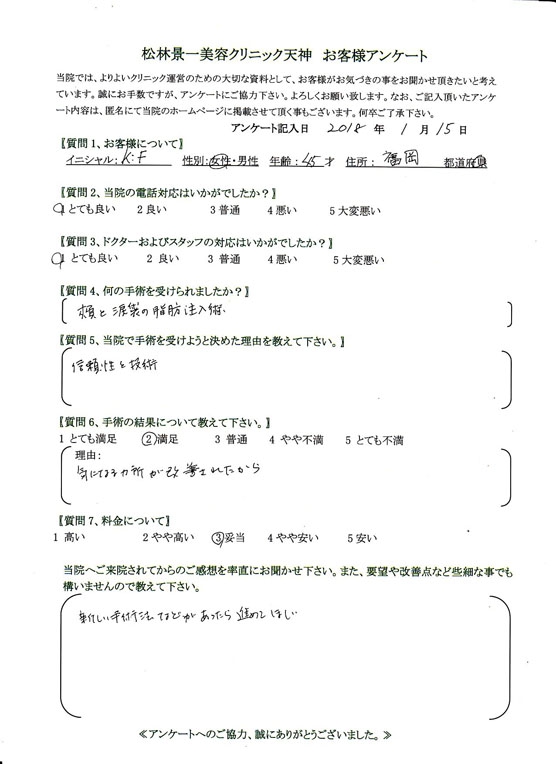 松林景一美容クリニック天神　お客様アンケート
当院では、よりよいクリニック運営のための大切な資料として、お客様がお気づきの事をお聞かせ頂きたいと考え
ています。誠にお手数ですが、アンケートにご協力下さい。よろしくお願い致します。なお、ご記入頂いたアンケ
ート内容は、匿名にて当院のホームページに掲載させて頂く事もございます。何卒ご了承下さい。
アンケート記入日　2018 年 1 月 15 日
【質問1、お客様について】
イニシャル：K.F　性別：女性・男性　年齢：45 才　住所：福岡　都道府県
【質問2、当院の電話対応はいかがでしたか？】
1 とても良い　2 良い　3 普通　4 悪い　5 大変悪い
【質問3、ドクターおよびスタッフの対応はいかがでしたか？】
1 とても良い　2 良い　3 普通　4 悪い　5 大変悪い
【質問4、何の手術を受けられましたか？】
頬と涙袋の脂肪注入術
【質問5、当院で手術を受けようと決めた理由を教えて下さい。】
信頼性と技術
【質問6、手術の結果について教えて下さい。】
1 とても満足　②満足　3 普通　4 やや不満　5 とても不満
理由：
気になる カ所が改善されたから
【質問7、料金について】
1 高い　2 やや高い　③妥当　4 やや安い　5 安い
当院へご来院されてからのご感想を率直にお聞かせ下さい。また、要望や改善点など些細な事でも
構いませんので教えて下さい。
新しい手術法などがあったら進めてほしい
≪アンケートへのご協力、誠にありがとうございました。≫